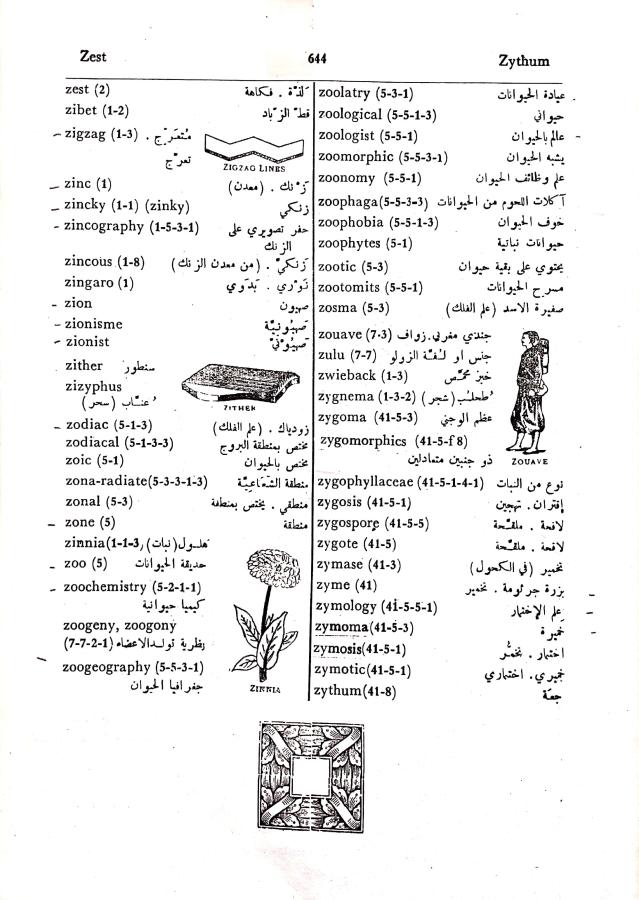 Zest 644 Zythum
zest (2) لَذّة . فكاهة
zibet (1-2) قطّ الزّباد
zigzag (1-3) مُتعرّج .
تعرّج
ZIGZAG LINES
zinc (1) زنك . (معدن)
zincky (1-1) (zinky) زنكي
zincography (1-5-3-1) حفر تصويري على
الزنك
zincous (1-8) زنكيّ . (من معدن الزنك)
zingaro (1) نَوَري . بَدَوي
zion صهيون
zionisme صهيونيّة
zionist صهيونيّ
zither سنطور
zizyphus
عنّاب (سحر)
ZITHER
zodiac (5-1-3) زودياك . (علم الفلك)
zodiacal (5-1-3-3) مختص بمنطقة البروج
zoic (5-1) مختص بالحيوان
zona-radiate(5-3-3-1-3) منطقة الشعاعيّة
zonal (5-3) منطقي . يختص بمنطقة
zone (5) منطقة
zinnia(1-1-3) (نبات)
zoo (5) حديقة الحيوانات
zoochemistry (5-2-1-1)
كيميا حيوانية
zoogeny, zoogony
(7-7-2-1) نظرية تولد الاعضاء
zoogeography (5-5-3-1)
جغرافيا الحيوان
ZINNIA
zoolatry (5-3-1) عبادة الحيوانات
zoological (5-5-1-3) حيواني
zoologist (5-5-1) عالم بالحيوان
zoomorphic (5-5-3-1) يشبه الحيوان
zoonomy (5-5-1) علم وظائف الحيوان
zoophaga(5-5-3-3) آكلات اللحوم من الحيوانات
zoophobia (5-5-1-3) خوف الحيوان
zoophytes (5-1) حيوانات نباتية
zootic (5-3) يحتوي على بقية حيوان
zootomits (5-5-1) مسرح الحيوانات
zosma (5-3) صفيرة الاسد (علم الفلك)
zouave (7-3) جندي مغربي.زواف
zulu (7-7) جنس او لغة الزولو
zwieback (1-3) خبز محمّص
zygnema (1-3-2) طحلب (شجر)
zygoma (41-5-3) عظم الوجني
zygomorphics (41-5-f8)
ذو جنبين متعادلين
ZOUAVE
zygophyllaceae (41-5-1-4-1) نوع من النبات
zygosis (41-5-1) إقتران . تهجين
zygospore (41-5-5) لاقحة . ملقّحة
zygote (41-5) لاقحة . ملقّحة
zymase (41-3) تخمير (في الكحول)
zyme (41) بزرة جرثومة . تخمير
zymology (41-5-5-1) علم الإختمار
zymoma(41-5-3) خميرة
zymosis(41-5-1) اختمار . تخمّر
zymotic(41-5-1) خميري . اختماري
zythum(41-8) جعّة